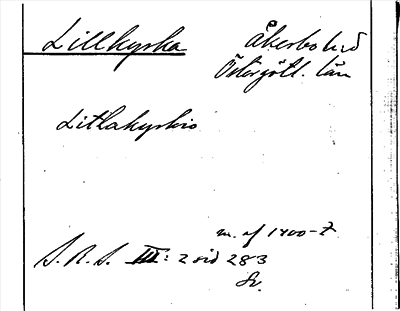 Lillkyrka Åkerbo hd
Östergötl. län
Litlakyrkio
m. af 1400-t.
S. R. S. III: 2 sid 283